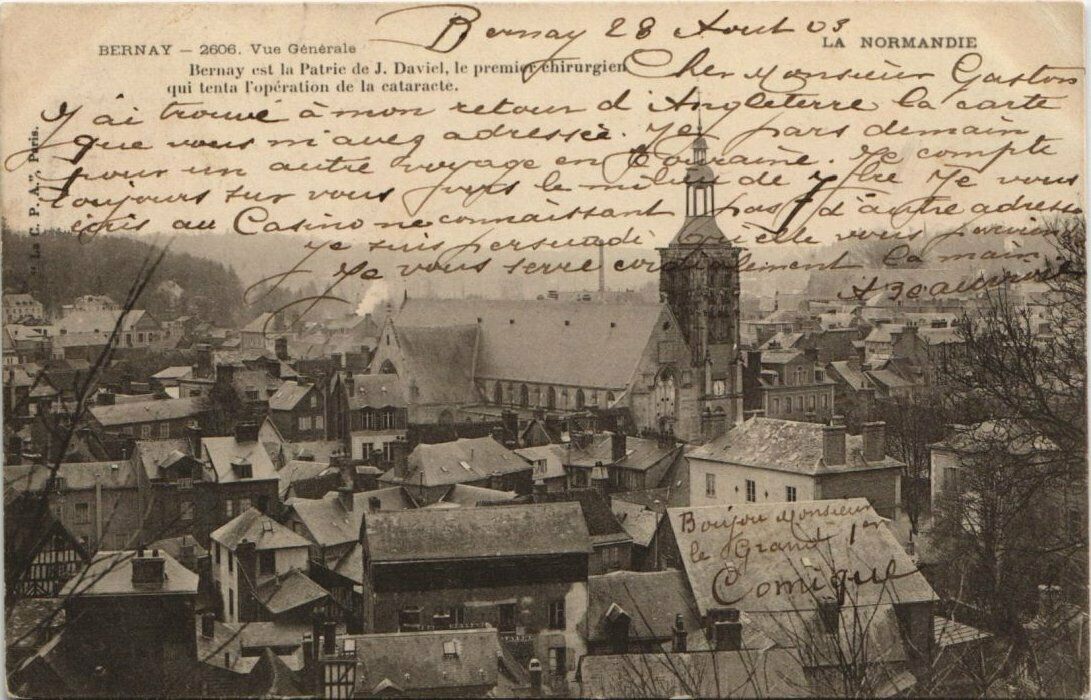 BERNAY – 2606. Vue Générale
LA NORMANDIE
Bernay est la Patrie de J. Daviel, le premier chirurgien
qui tenta l'opération de la cataracte.
"La C. P. A.", Paris.
Bernay 28 Aout 03
Cher Monsieur Gaston
J'ai trouvé à mon retour d'Angleterre la carte
que vous m'avez adressée. Je pars demain
pour un autre voyage en Touraine. Je compte
toujours sur vous vers le milieu de 7bre Je vous
écris au Casino ne connaissant pas d'autre adresse
je suis persuadé qu'elle vous parviendra
Je vous serre cordialement la main
Boujou Monsieur
le Grand 1er
Comique